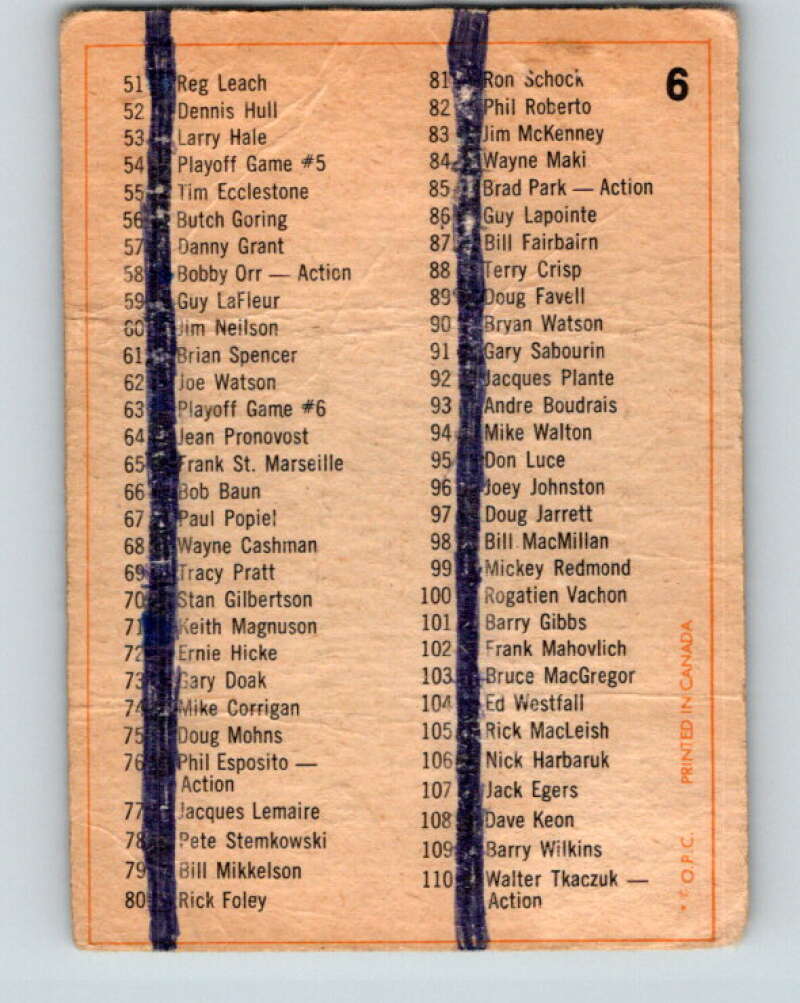 6
51 Reg Leach
52 Dennis Hull
53 Larry Hale
54 Playoff Game #5
55 Tim Ecclestone
56 Butch Goring
57 Danny Grant
58 Bobby Orr — Action
59 Guy LaFleur
60 Jim Neilson
61 Brian Spencer
62 Joe Watson
63 Playoff Game #6
64 Jean Pronovost
65 Frank St. Marseille
66 Bob Baun
67 Paul Popiel
68 Wayne Cashman
69 Tracy Pratt
70 Stan Gilbertson
71 Keith Magnuson
72 Ernie Hicke
73 Gary Doak
74 Mike Corrigan
75 Doug Mohns
76 Phil Esposito —
Action
77 Jacques Lemaire
78 Pete Stemkowski
79 Bill Mikkelson
80 Rick Foley
81 Ron Schock
82 Phil Roberto
83 Jim McKenney
84 Wayne Maki
85 Brad Park — Action
86 Guy Lapointe
87 Bill Fairbairn
88 Terry Crisp
89 Doug Favell
90 Bryan Watson
91 Gary Sabourin
92 Jacques Plante
93 Andre Boudrais
94 Mike Walton
95 Don Luce
96 Joey Johnston
97 Doug Jarrett
98 Bill MacMillan
99 Mickey Redmond
100 Rogatien Vachon
101 Barry Gibbs
102 Frank Mahovlich
103 Bruce MacGregor
104 Ed Westfall
105 Rick MacLeish
106 Nick Harbaruk
107 Jack Egers
108 Dave Keon
109 Barry Wilkins
110 Walter Tkaczuk —
Action
O.P.C. PRINTED IN CANADA